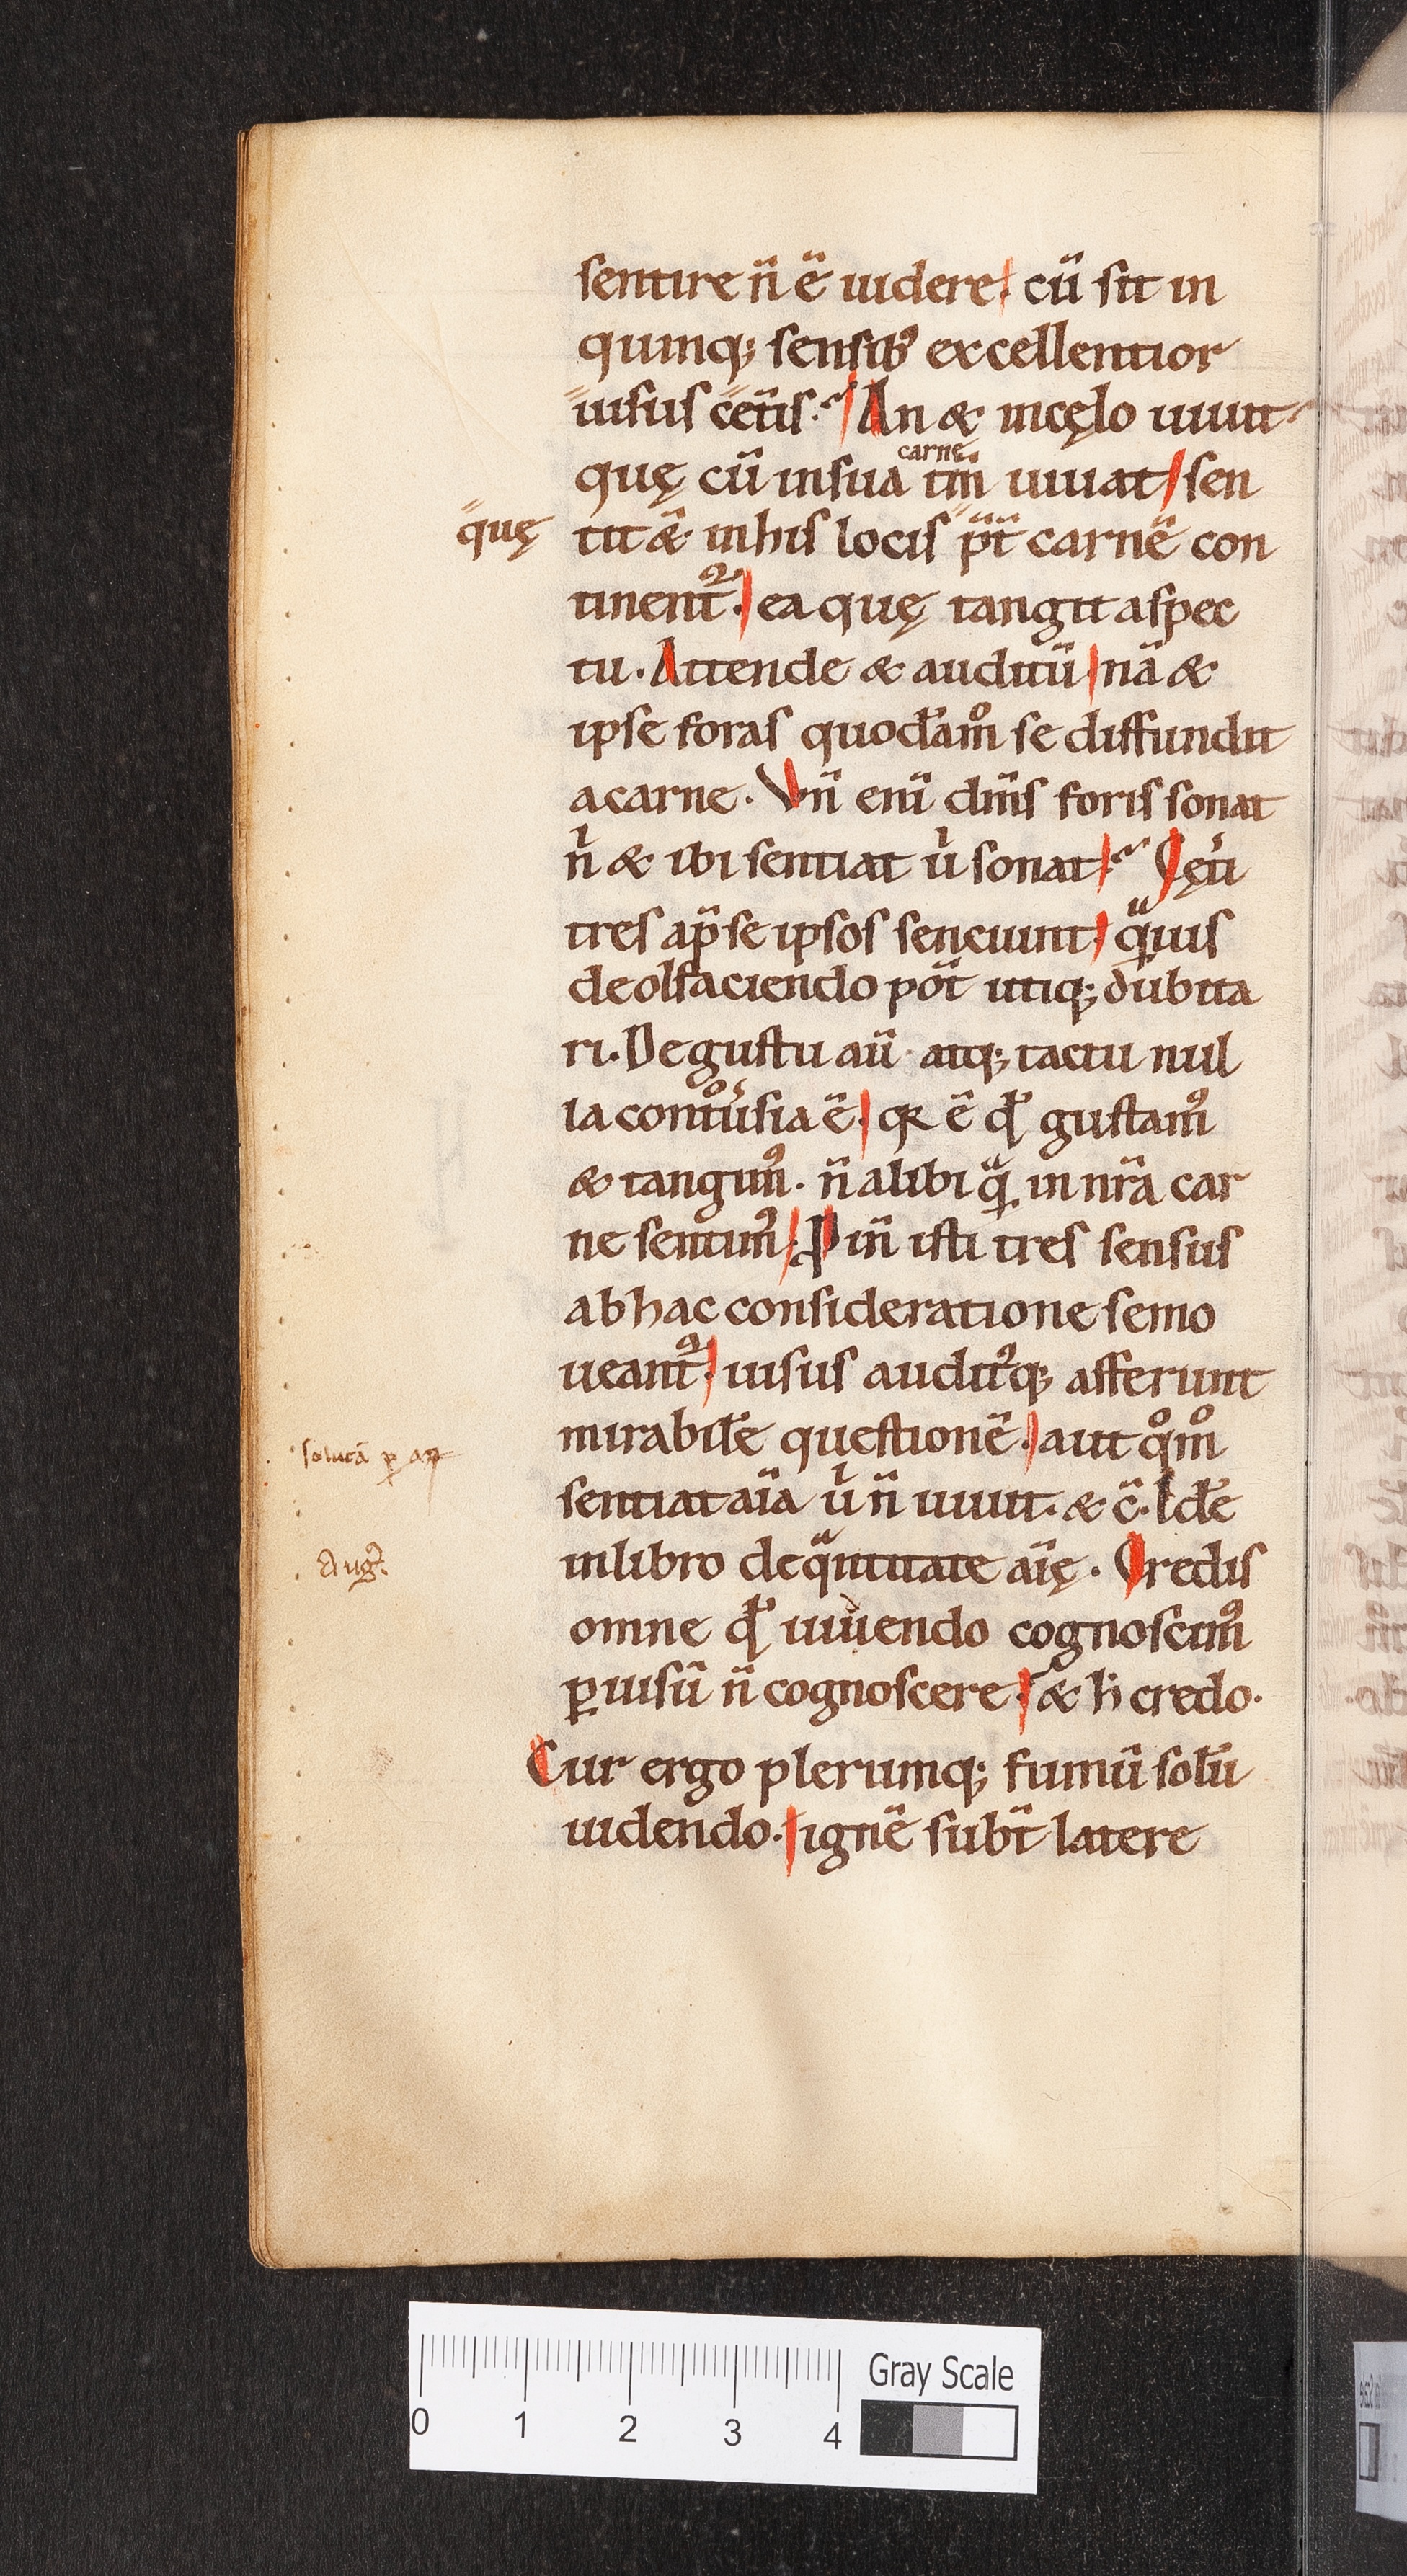 sentire n̄ ē uidere. cū sit in
quinq; sensib᷒ excellentior
uisus cet̄is. An & incęlo uiuit
carne
quę cū insua tm̄ uiuat / sen
quę
tit & inhis locis p̄t̄ carnē con
tinent᷑. ea quę tangit aspec
tu. Attende & auditū nā &
ipse foras quodam̊ se diffundit
acarne. Vn̄ enī dm̄s foris sonat
nͥ & ibi sentiat uͥ sonat. Cęti
tres ap̄ se ipsos senciunt. qͣuis
deolfaciendo pōt utiq; dubita
ri. Degustu aū atq; tactu nul
la cont̊u̓sia ē. qr ē qd̓ gustam᷒
& tangim᷒. n̄ alibi qͣ̄ in nr̄a car
ne sentim᷒. Proin̄ isti tres sensus
abhac consideratione semo
ueant᷑. uisus audit᷒q; afferunt
mirabil̓e questionē. aut qͦm̊
solutā ꝑ ap
sentiat aīa uͥ n̄ uiuit. & c̄. Id̓e
Aug᷒.
inlibro deqͣntitate aīę. Credis
omne qd̓ uiuendo cognoscim᷒
ꝑuisū n̄ cognoscere. & h̄ credo.
Cur ergo plerumq; fumū solū
uidendo. ignē subt̄ latere
Gray Scale
0 1 2 3 4